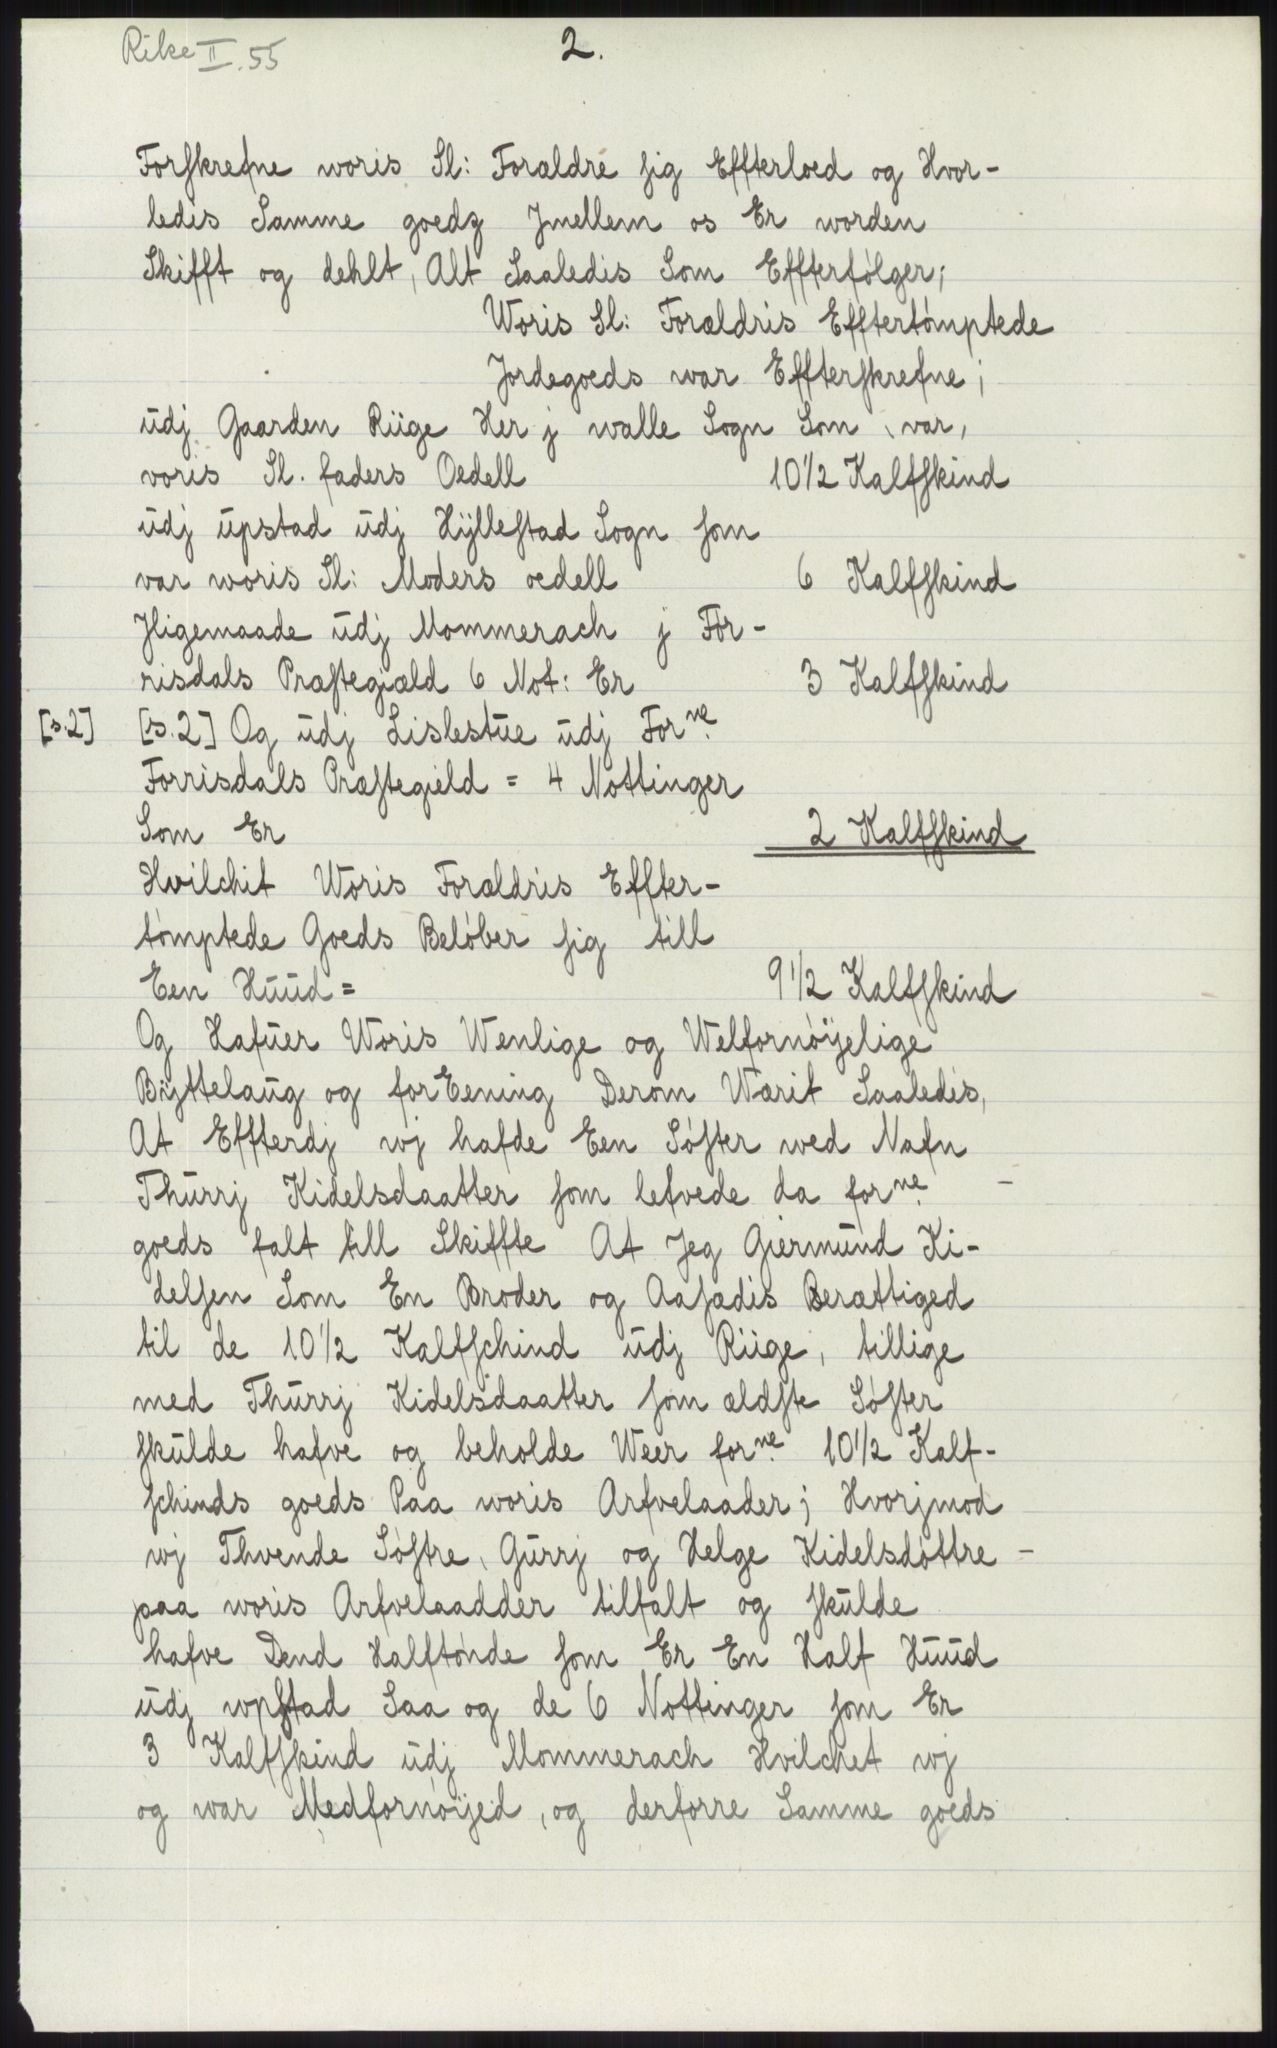 Rike II. 55
2.
Forskrefne woris Sl: Forældre sig Effterloed og Hvor-
ledis Samme goedz Jmellem os Er worden
Skifft og dehlt, Alt Saaledis Som Effterfølger;
Woris Sl: Forældris Efftertømptede
Jordegoeds war Effterskrefne;
udj Gaarden Riige Her j walle Sogn Som var,
voris Sl. faders Oedell 10 1/2 Kalfskind
udj upstad udj Hÿllestad Sogn som
var woris Sl: Moders oedell 6 Kalfskind
Jligemaade udj Mommerach j For-
risdals Præstegiæld 6 Not: Er 3 Kalfskind
[s.2] [s.2] Og udj Lislestue udj Forne
Forrisdals Præstegield = 4 Nottinger
Som Er 2 Kalfskind
Hvilchit Woris Forældris Effter-
tømptede Goeds Beløber sig till
Een Huud = 9 1/2 Kalfskind
Og Hafuer Woris Wenlige og Welfornøÿelige
Bÿttelaug og forEening Derom Wærit Saaledis,
At Effterdj wj hafde Een Søster wed Nafn
Thurrj Kidelsdaatter som lefvede da forne -
goeds falt till Skiffte At Jeg Giermund Ki-
delsen Som En Broder og Aasædis Berættiged
til de 10 1/2 Kalfschind udj Riige, tillige
med Thurrj Kidelsdaatter som ældste Søster
skulde hafve og beholde Weer forne 10 1/2 Kalf-
schinds goeds Paa woris Arfvelaader; Hvorjmod
wj Thvende Søstre, Gurrj og Helge Kidelsdøttre -
paa woris Arfvelaadder tilfalt og skulde
hafve Dend Halftønde som Er En Half Huud
udj wpstad Saa og de 6 Nottinger som Er
3 Kalfskind udj Mommerach Hvilchet wj
og war Medfornøÿed, og derforre Samme goeds